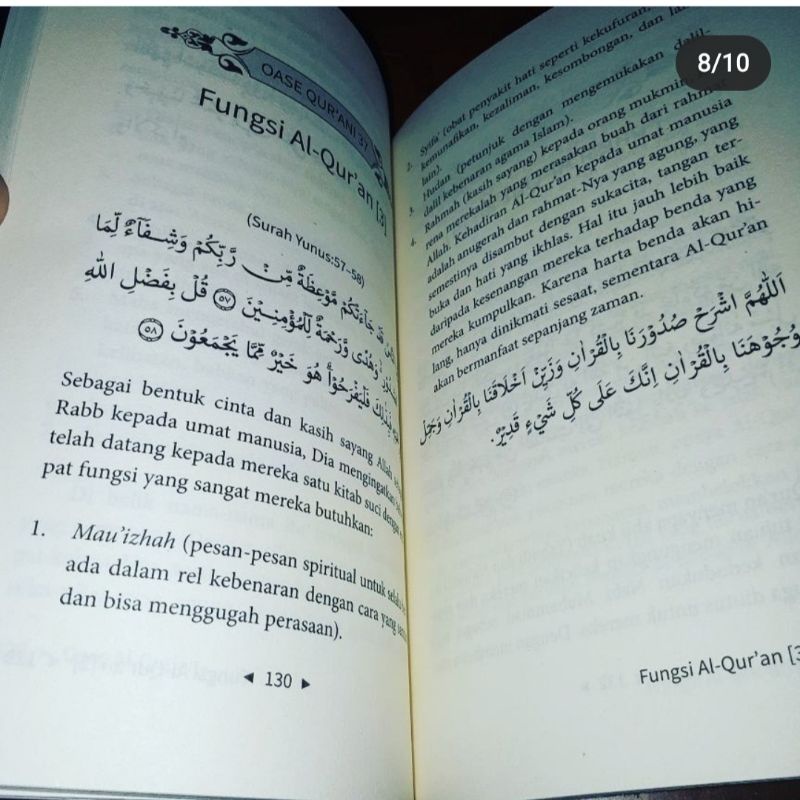 8/10
OASE QUR'ANI 37
Fungsi Al-Qur'an [3]
(Surah Yunus:57–58)
جَاۤءَتْكُمْ مَّوْعِظَةٌ مِّنْ رَّبِّكُمْ وَشِفَاۤءٌ لِّمَا
وَهُدًى وَّرَحْمَةٌ لِّلْمُؤْمِنِيْنَ ٥٧ قُلْ بِفَضْلِ اللّٰهِ
فَلْيَفْرَحُوْاۗ هُوَ خَيْرٌ مِّمَّا يَجْمَعُوْنَ ٥٨
Sebagai bentuk cinta dan kasih sayang Allah
Rabb kepada umat manusia, Dia mengingatkan
telah datang kepada mereka satu kitab suci dengan
pat fungsi yang sangat mereka butuhkan:
1. Mau'izhah (pesan-pesan spiritual untuk
ada dalam rel kebenaran dengan cara yang
dan bisa menggugah perasaan).
◄ 130 ►
2. Syifa' (obat penyakit hati seperti kekufuran,
kemunafikan, kezaliman, kesombongan, dan
lain).
3. Hudan (petunjuk dengan mengemukakan dalil-
dalil kebenaran agama Islam).
4. Rahmah (kasih sayang) kepada orang mukmin,
rena merekalah yang merasakan buah dari rahmat
Allah. Kehadiran Al-Qur'an kepada umat manusia
adalah anugerah dan rahmat-Nya yang agung, yang
semestinya disambut dengan sukacita, tangan ter-
buka dan hati yang ikhlas. Hal itu jauh lebih baik
daripada kesenangan mereka terhadap benda yang
mereka kumpulkan. Karena harta benda akan hi-
lang, hanya dinikmati sesaat, sementara Al-Qur'an
akan bermanfaat sepanjang zaman.
اَللّٰهُمَّ اشْرَحْ صُدُوْرَنَا بِالْقُرْاٰنِ وَزَيِّنْ اَخْلَاقَنَا بِالْقُرْاٰنِ وَجَمِّلْ
وُجُوْهَنَا بِالْقُرْاٰنِ اِنَّكَ عَلَى كُلِّ شَيْءٍ قَدِيْرٌ.
Fungsi Al-Qur'an [3